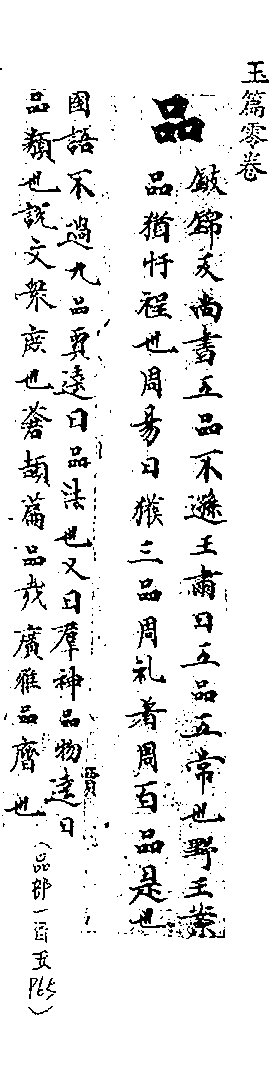 玉篇零卷
品
皷錦反尚書五品不遜王肅曰五品五常也野王案
品猶忏程也周易曰獲三品周礼著周百品是也
國語不過九品賈逵曰品法也又曰羣神品物賈逵曰
品類也說文衆庶也蒼頡篇品式廣雅品齊也
(品部一百五 P65)